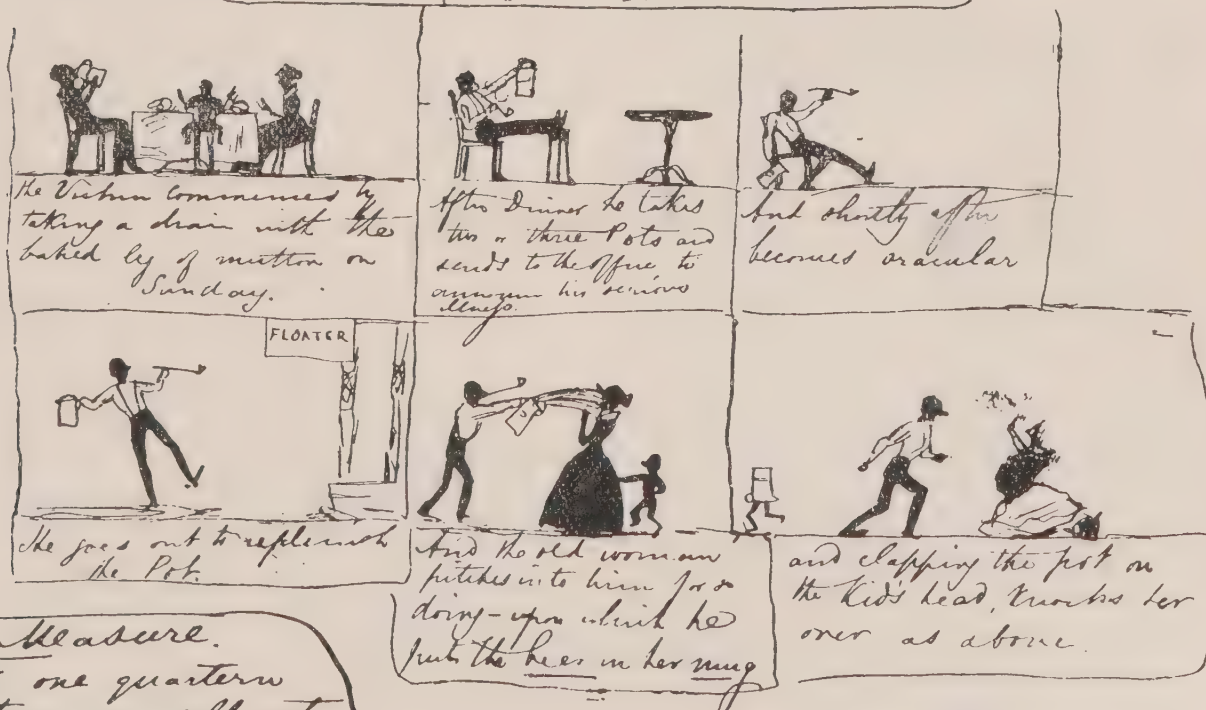 The Victim commences by
taking a drain with the
baked leg of mutton on
Sunday.
After Dinner he takes
two or three Pots and
sends to the office to
announce his serious
illness.
And shortly after
becomes oracular
FLOATER
He goes out to replenish
the Pot.
And the old woman
pitches into him for so
doing - upon which he
puts the beer in her mug
and clapping the pot on
the Kid's head, Knocks her
over as above.
Measure.
one quartern